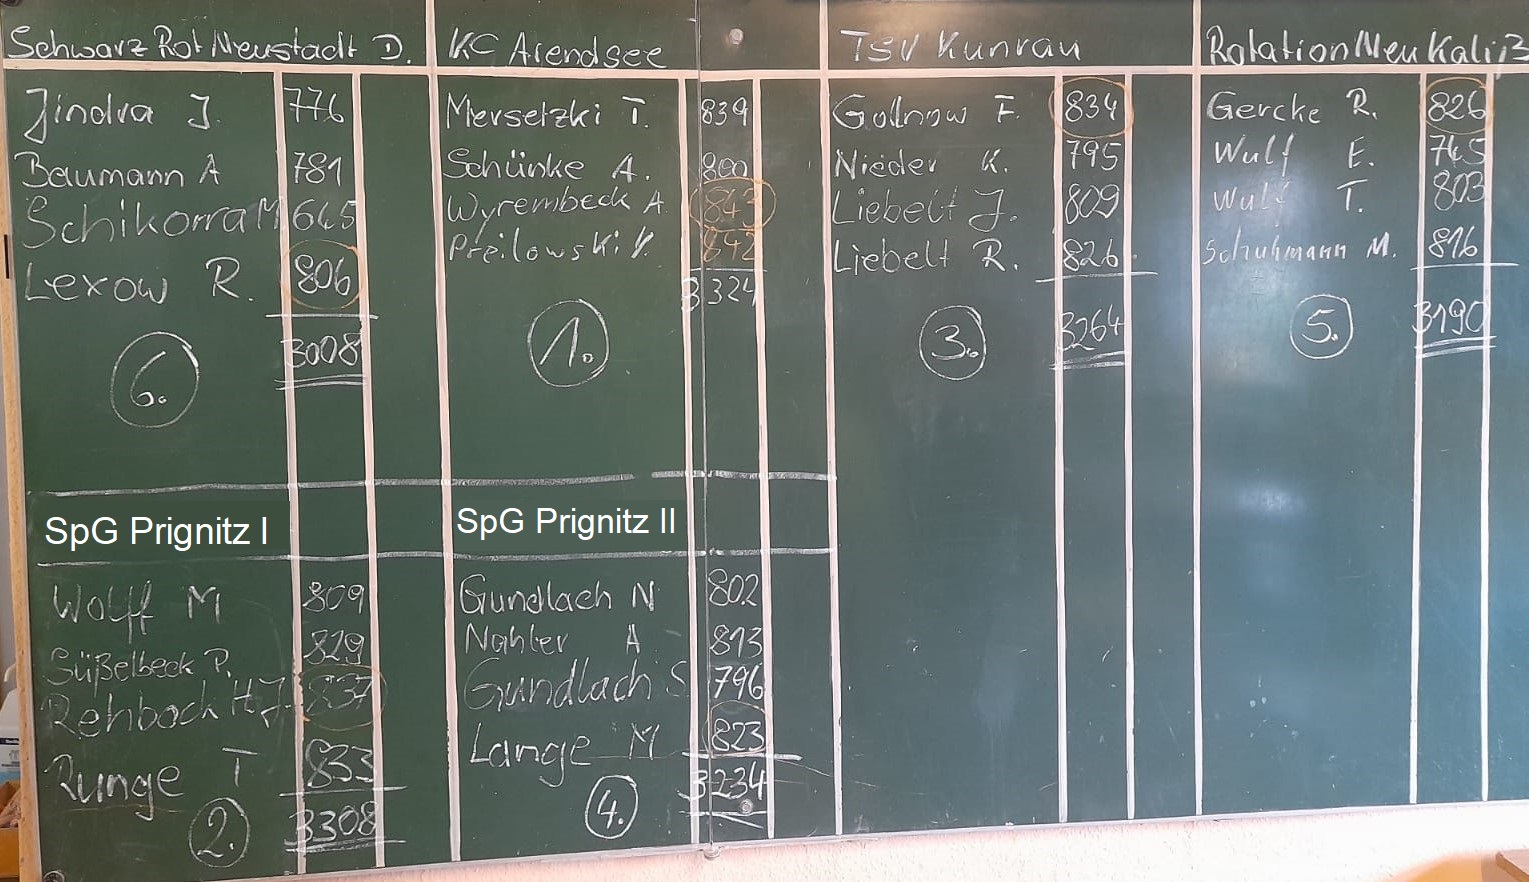 Schwarz Rot Neustadt D.
Jindra J. 776
Baumann A 781
Schikorra M 645
Lexow R. 806
3008
6.
KC Arendsee
Mersetzki T. 839
Schünke A. 800
Wyrembeck A 843
842
3324
1.
TSV Kunrau
Gollnow F. 834
Nieder K. 795
Liebelt J. 809
Liebelt R. 826
3264
3.
Rotation Neu Kaliß
Gercke R. 826
Wulf E. 745
Wulf T. 803
Schuhmann M. 816
3190
5.
SpG Prignitz I
Wolff M 809
Süßelbeck P. 829
Rehbock H.J. 837
Runge T 833
3308
2.
SpG Prignitz II
Gundlach N 802
Nahler A 813
Gundlach S 796
Lange M 823
3234
4.